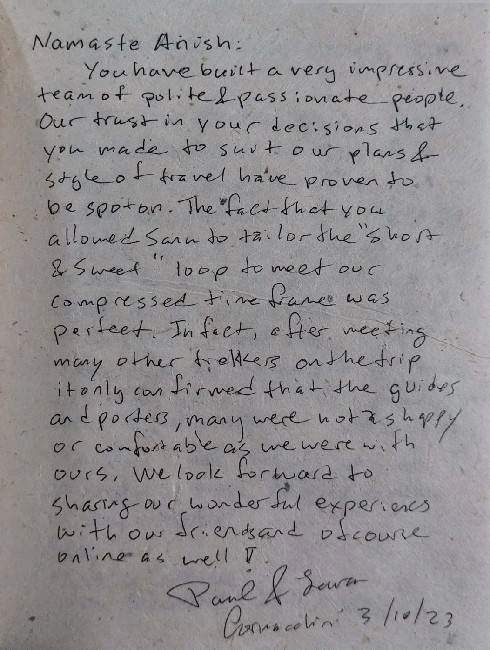 Namaste Anish:
You have built a very impressive
team of polite & passionate people.
Our trust in your decisions that
you made to suit our plans &
style of travel have proven to
be spot on. The fact that you
allowed Sanu to tailor the "short
& sweet" loop to meet our
compressed time frame was
perfect. In fact, after meeting
many other trekkers on the trip
it only confirmed that the guides
and porters, many were not as happy
or comfortable as we were with
ours. We look forward to
sharing our wonderful experiences
with our friends and of course
online as well
Paul &
3/10/23